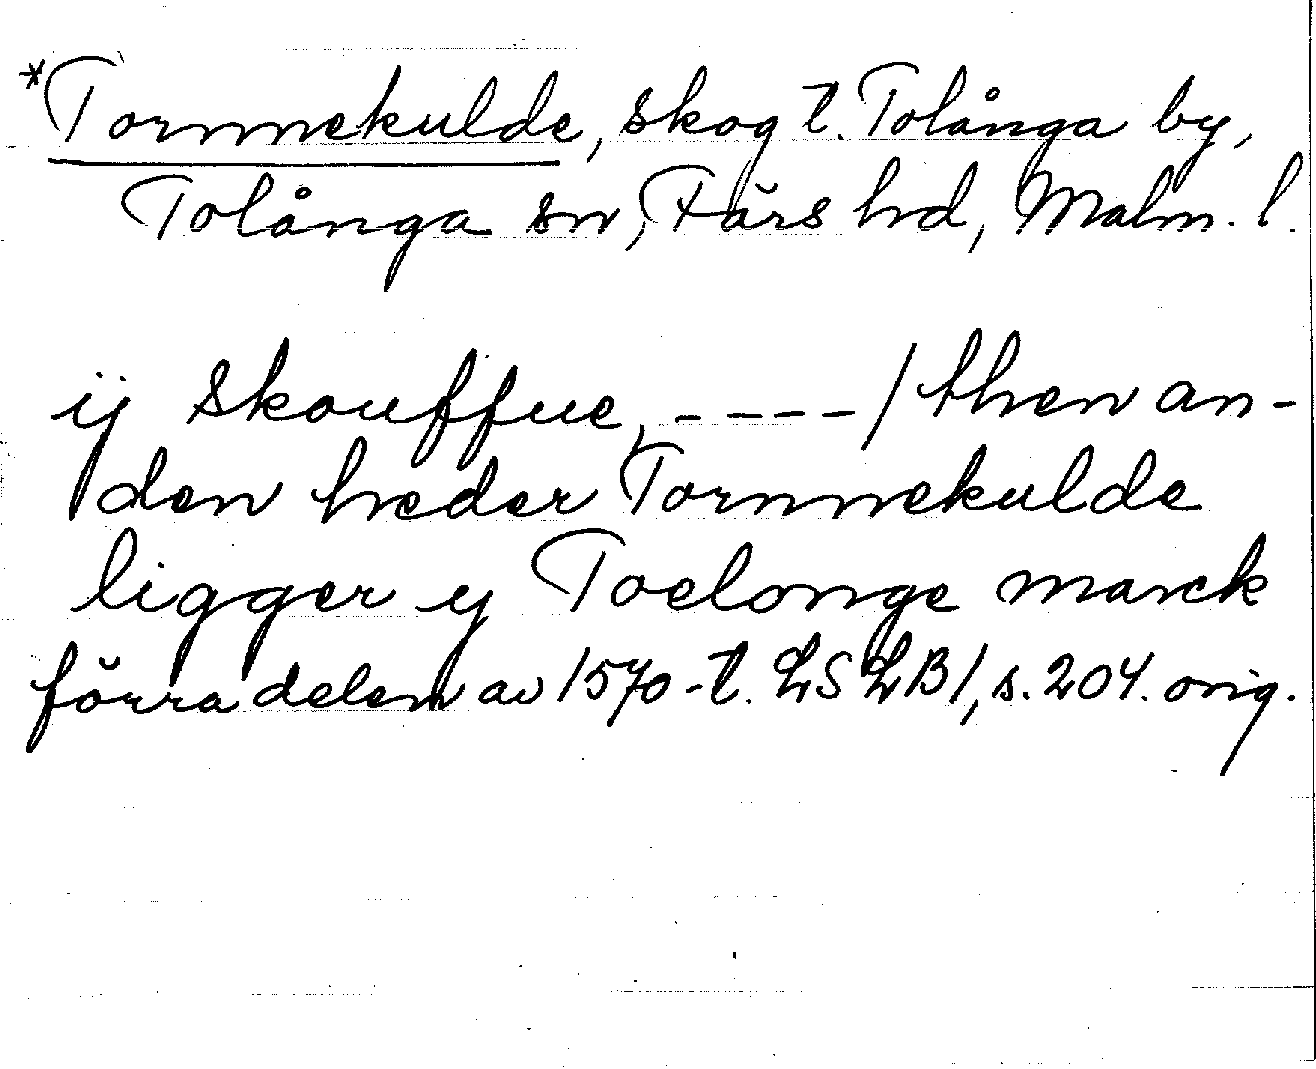 *Tornnekulde, skog t. Tolånga by,
Tolånga sn, Färs hd, Malm. l.
ij skouffue, ---- / then an-
den heder Tornnekulde
ligger y Toelonge marck
förra delen av 1570-t. LSLB1, s. 204. orig.